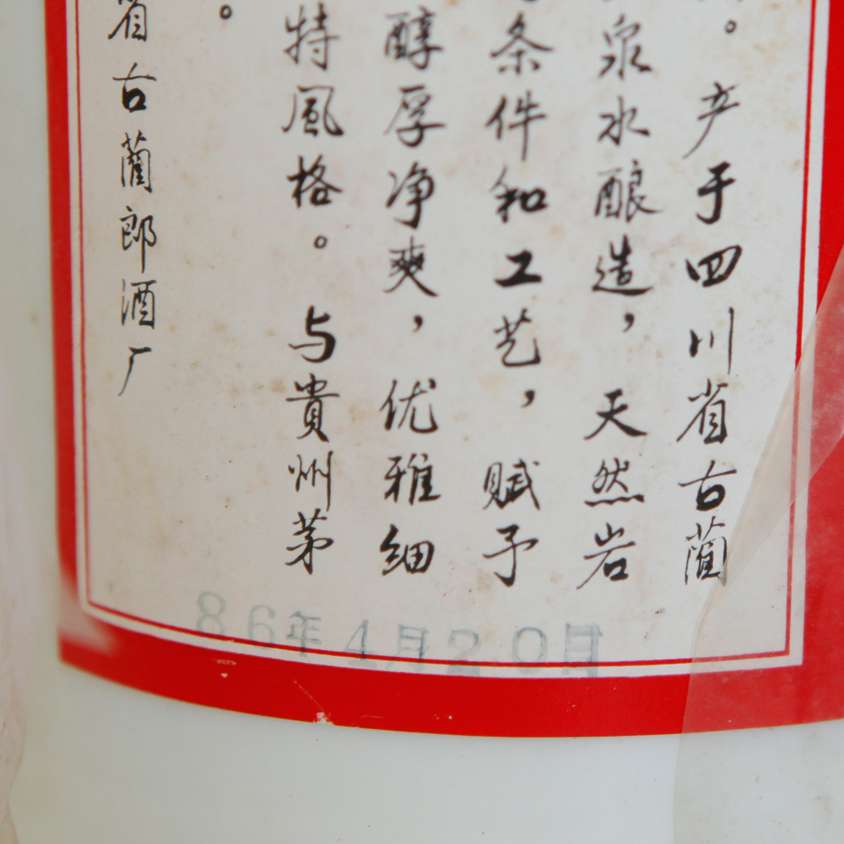 。产于四川省古蔺
泉水酿造，天然岩
条件和工艺，赋予
醇厚净爽，优雅细
特風格。与貴州茅
。
省古蔺郎酒厂
86年4月20日